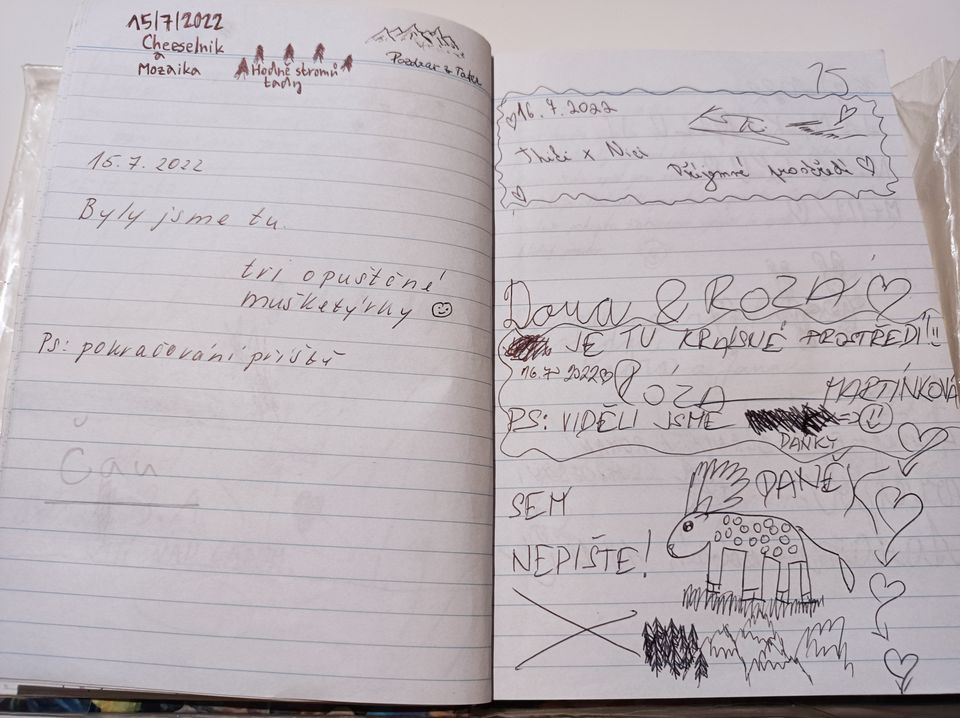 15/7/2022
Cheeselnik
a
Mozaika
Hodně stromů
tady
Pozdrav z Tater
15.7.2022
Byly jsme tu.
tri opuštěné
mušketýrky
Ps: pokračování príště
Čau
15
16.7.2022
x Nici
Příjemné prostředí
Dana & ROZÁ
JE TU KRÁSNÉ PROSTŘEDÍ!!
16.7. 2022
RÓZA MARTÍNKOVÁ
PS: VIDĚLI JSME
DAŇKY
SEM
DANĚK
NEPIŠTE!